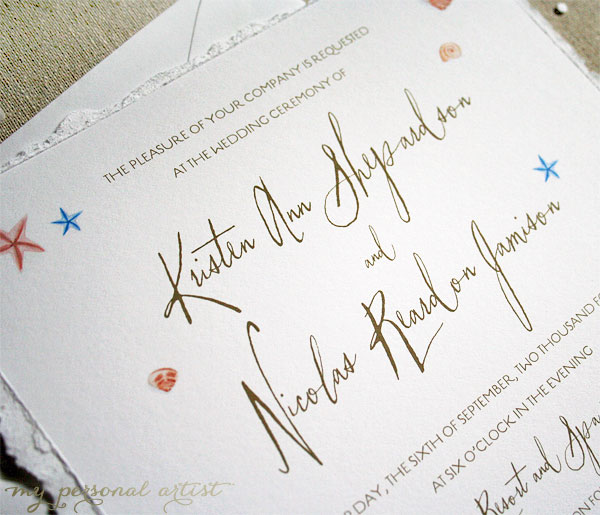 THE PLEASURE OF YOUR COMPANY IS REQUESTED
AT THE WEDDING CEREMONY OF
Kristen Ann Shepardson
and
Nicolas Reardon Jamison
DAY, THE SIXTH OF SEPTEMBER, TWO THOUSAND FO
AT SIX O'CLOCK IN THE EVENING
Resort and Spa
my personal artist